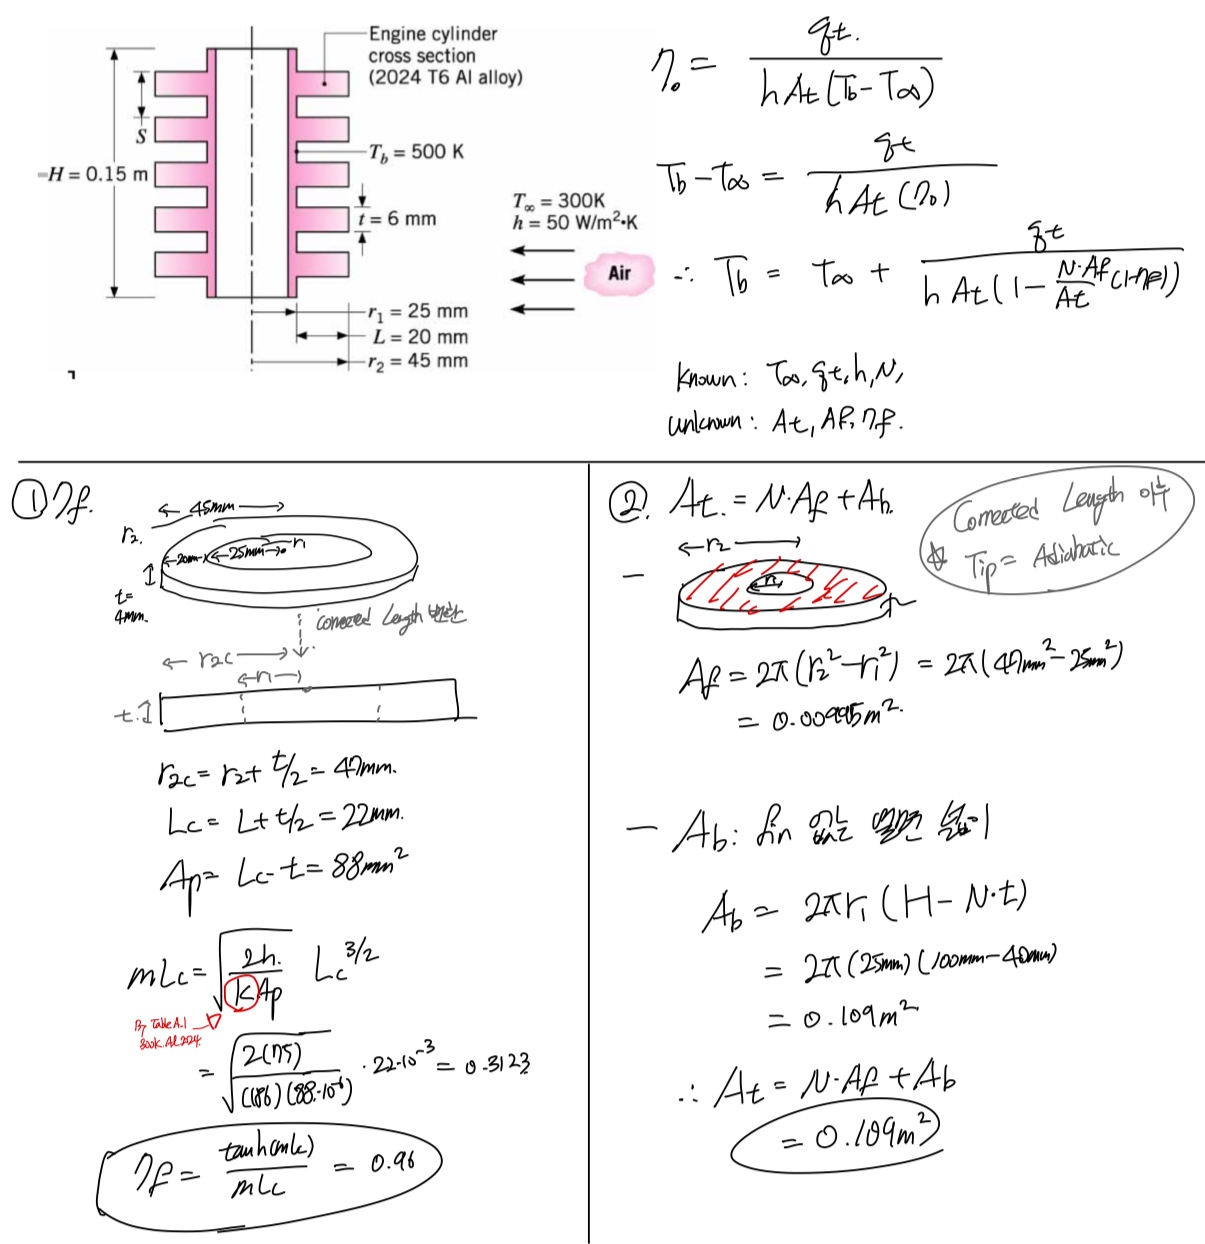 Engine cylinder
cross section
(2024 T6 Al alloy)
S
T_b = 500 K
H = 0.15 m
T∞ = 300K
h = 50 W/m²•K
t = 6 mm
Air
r₁ = 25 mm
L = 20 mm
r₂ = 45 mm
η₀ = qt. / hAt(Tb-T∞)
Tb-T∞ = qt / hAt(η₀)
∴ Tb = T∞ + qt / hAt(1 - N·Af/At (1-ηf))
Known: T∞, qt, h, N,
unknown: At, Af, ηf.
① ηf.
← 45mm →
r₂.
←20mm→ ←25mm→ r₁
t=
4mm.
Corrected Length
← r2c →
←r₁→
t.
r2c = r₂ + t/2 = 47mm.
Lc = L + t/2 = 22mm.
Ap = Lc · t = 88mm²
mLc = √(2h. / kAp) Lc^3/2
By Table A.1
300K. Al 2024.
= √(2(75) / (186)(88·10⁻⁶)) · 22·10⁻³ = 0.3123
ηf = tanh(mLc) / mLc = 0.96
② At. = N·Af + Ab.
Corrected Length 이후
☆ Tip = Adiabatic
←r₂→
r₁
Af = 2π(r₂²-r₁²) = 2π(47mm²-25mm²)
= 0.00995m².
- Ab: fin 없는 넓이
Ab = 2πr₁(H-N·t)
= 2π(25mm)(100mm-40mm)
= 0.109m²
∴ At = N·Af + Ab
= 0.109m²